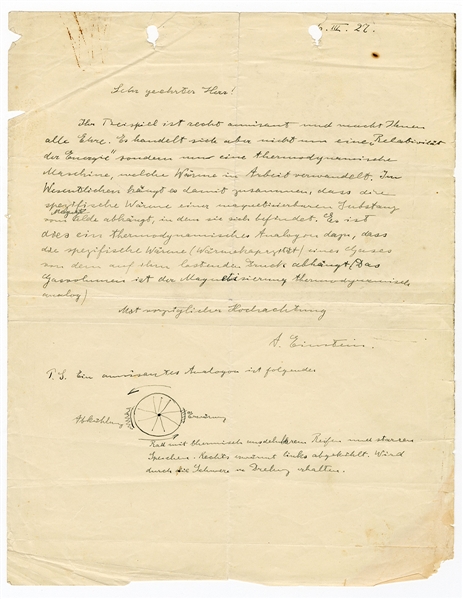 III. 27.
Sehr geehrter Herr!
Ihr Beispiel ist recht amüsant und macht Ihnen
alle Ehre. Es handelt sich aber nicht um eine "Relativität
der Energie" sondern um eine thermodynamische
Maschine, welche Wärme in Arbeit verwandelt. Im
Wesentlichen hängt es damit zusammen, dass die
spezifische Wärme einer magnetisierbaren Substanz
vom Magnet Felde abhängt, in dem sie sich befindet. Es ist
dies ein thermodynamisches Analogon dazu, dass
die spezifische Wärme (Wärmekapazität) eines Gases
von dem auf ihm lastenden Druck abhängt (Das
Gasvolumen ist der Magnetisierung thermodynamisch
analog)
Mit vorzüglicher Hochachtung
A. Einstein.
P.S. Ein amüsantes Analogon ist folgendes
Abkühlung Erwärmung
Rad mit thermisch ausdehnbarem Reifen und starren
Speichen. Rechts erwärmt links abgekühlt. Wird
durch die Schwere in Drehung erhalten.